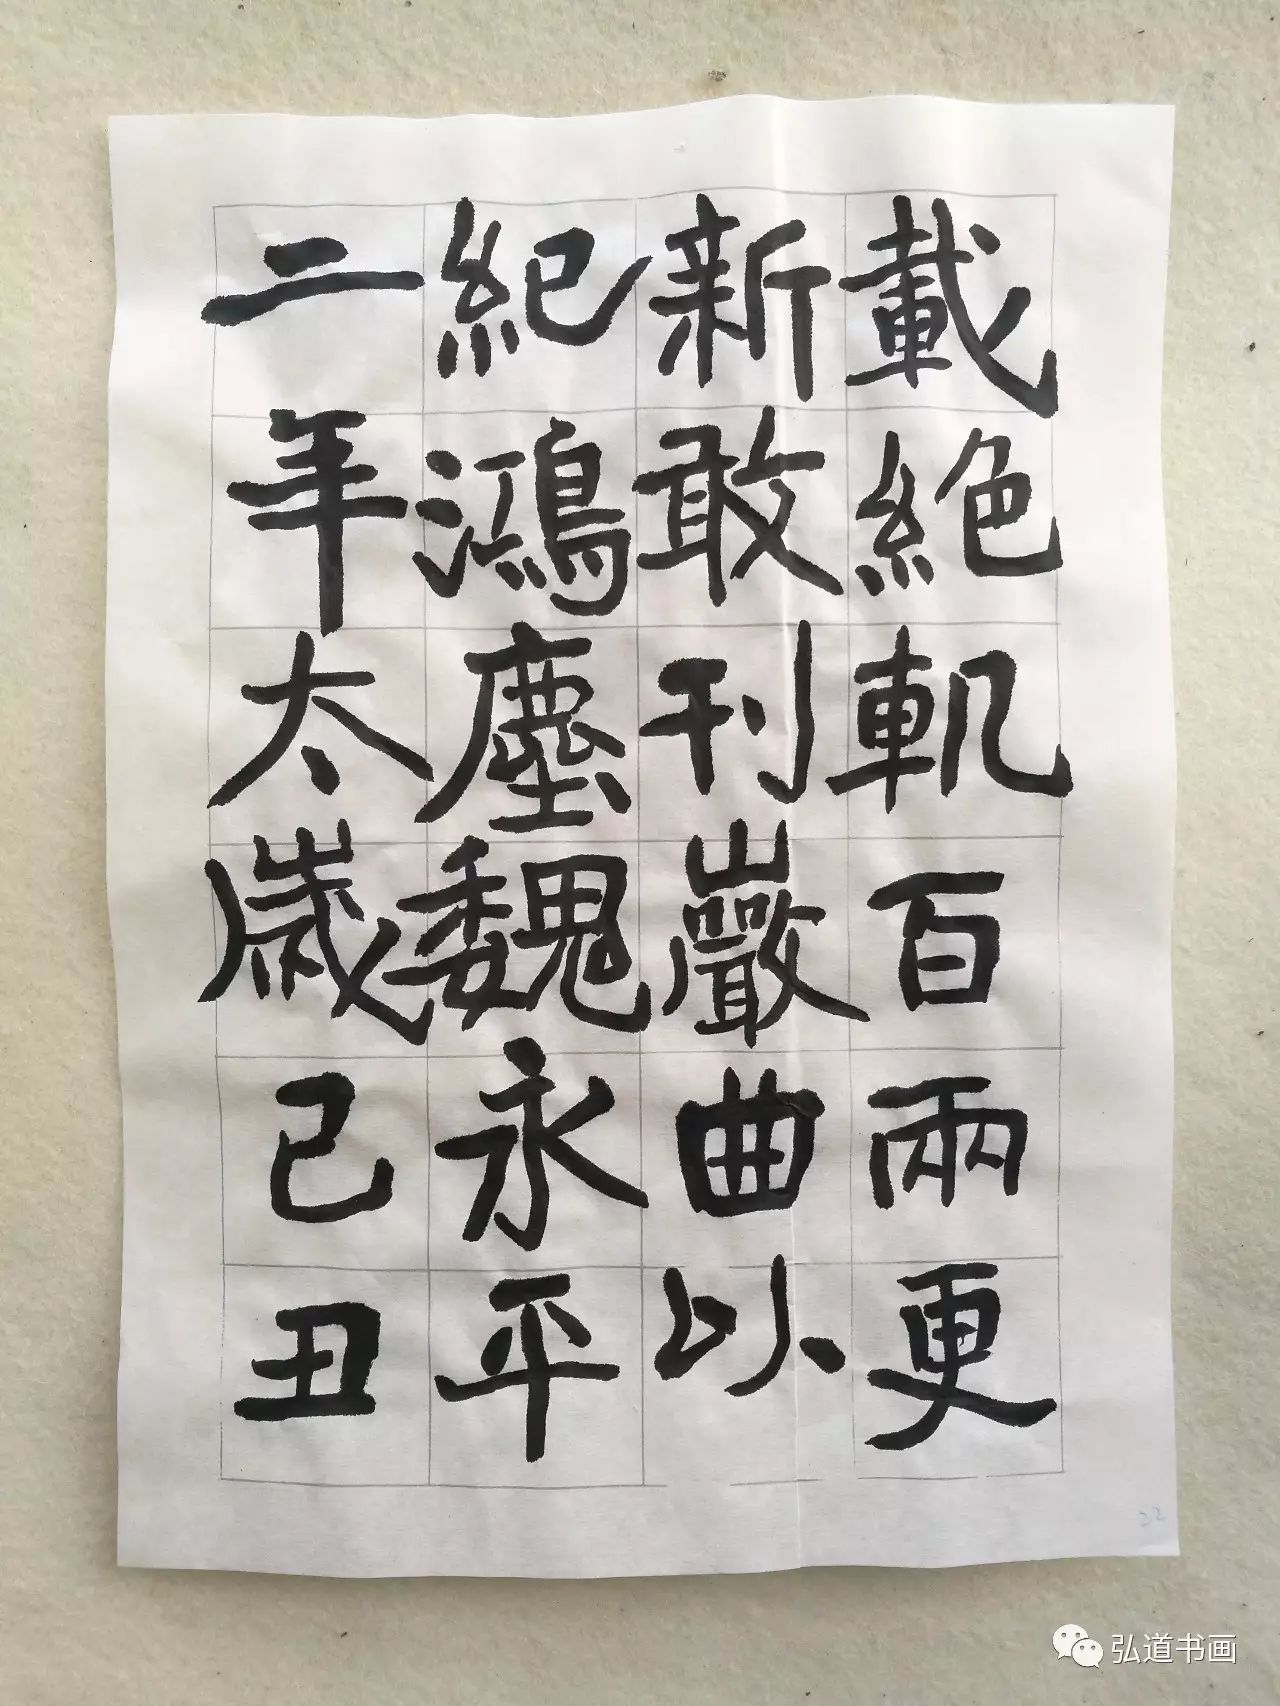 載絶軌百兩更
新敢刊巖曲以
紀鴻塵魏永平
二年太歲己丑
22
弘道书画